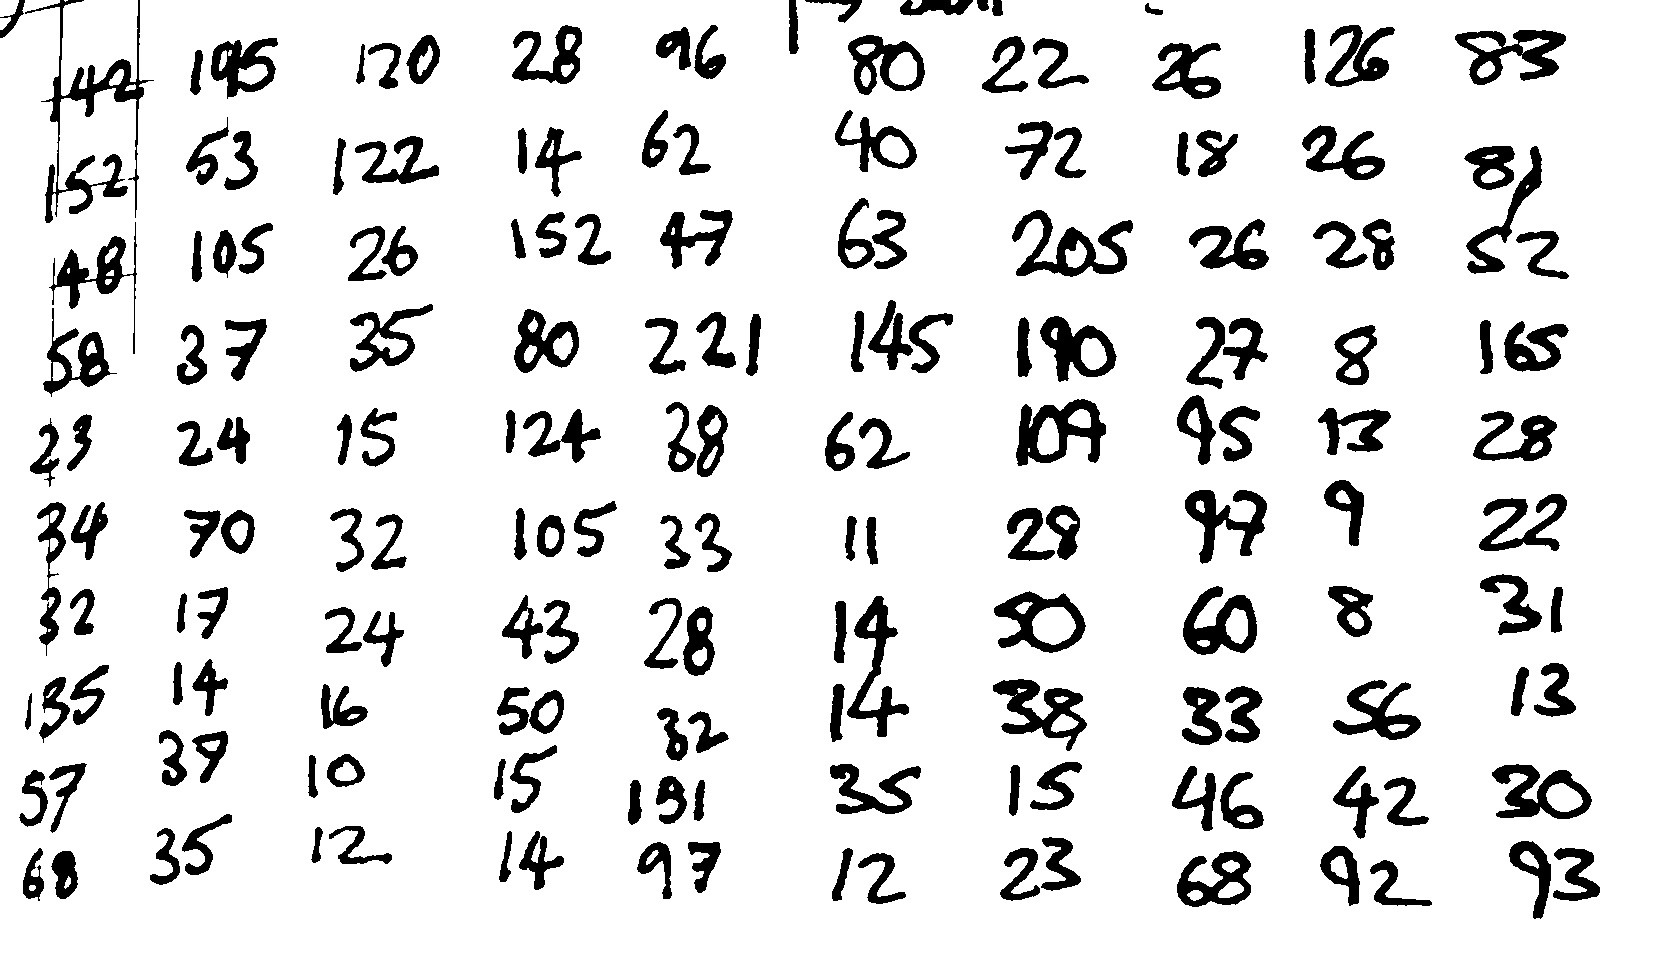 142 195 120 28 96 80 22 26 126 83
152 53 122 14 62 40 72 18 26 81
48 105 26 152 47 63 205 26 28 52
58 37 35 80 221 145 190 27 8 165
23 24 15 124 38 62 109 95 13 28
34 70 32 105 33 11 28 97 9 22
32 17 24 43 28 14 50 60 8 31
135 14 16 50 32 14 38 33 56 13
57 39 10 15 191 35 15 46 42 30
68 35 12 14 97 12 23 68 92 93